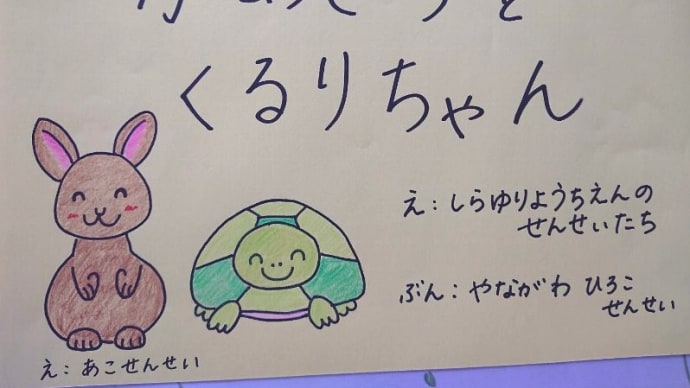 くるりちゃん
え：しらゆりようちえんの
せんせいたち
ぶん：やながわ ひろこ
せんせい
え：あこせんせい